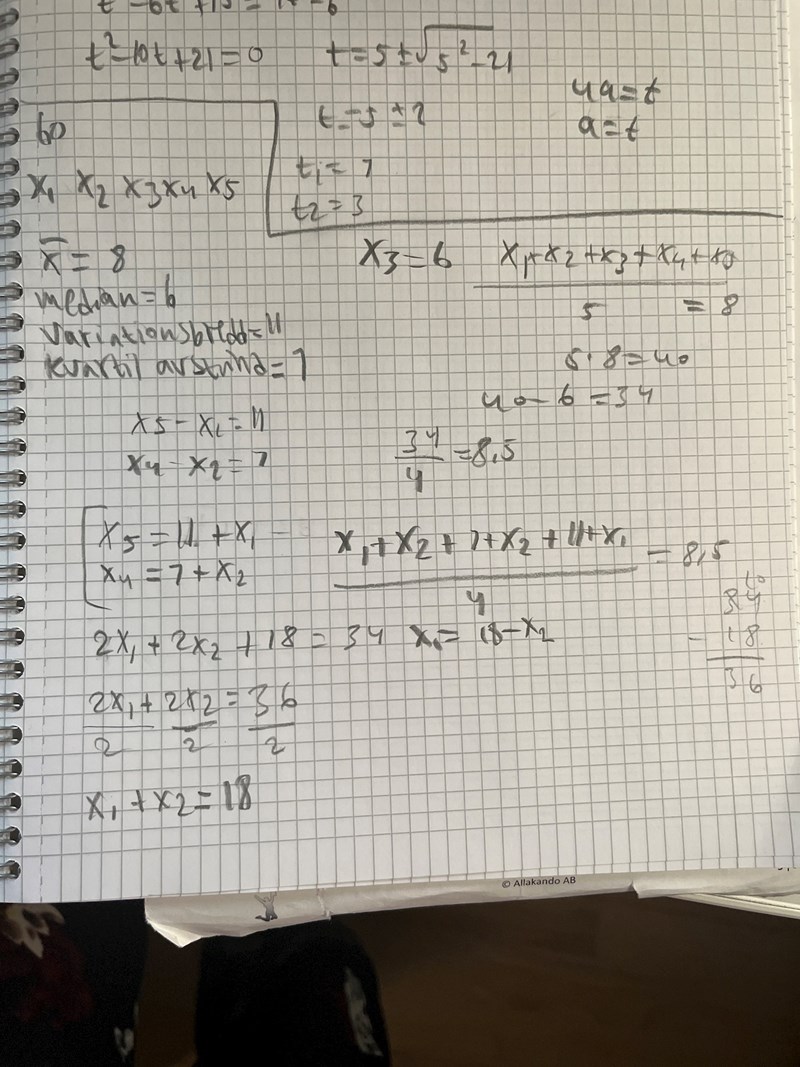 t² - 10t + 21 = 0
t = 5 ± √5² - 21
t = 5 ± 2
4a = t
a = t
t₁ = 7
t₂ = 3
60
x₁ x₂ x₃ x₄ x₅
x̄ = 8
median = 6
variationsbredd = 11
kvartil avstånd = 7
x₃ = 6
x₁ + x₂ + x₃ + x₄ + x₅
5 = 8
5 · 8 = 40
40 - 6 = 34
34/4 = 8,5
x₅ - x₁ = 11
x₄ - x₂ = 7
x₅ = 11 + x₁
x₄ = 7 + x₂
x₁ + x₂ + 7 + x₂ + 11 + x₁ = 8,5
4
2x₁ + 2x₂ + 18 = 34
x₁ = 18 - x₂
10
34
- 18
36
2x₁ + 2x₂ = 36
2 2 2
x₁ + x₂ = 18
© Allakando AB